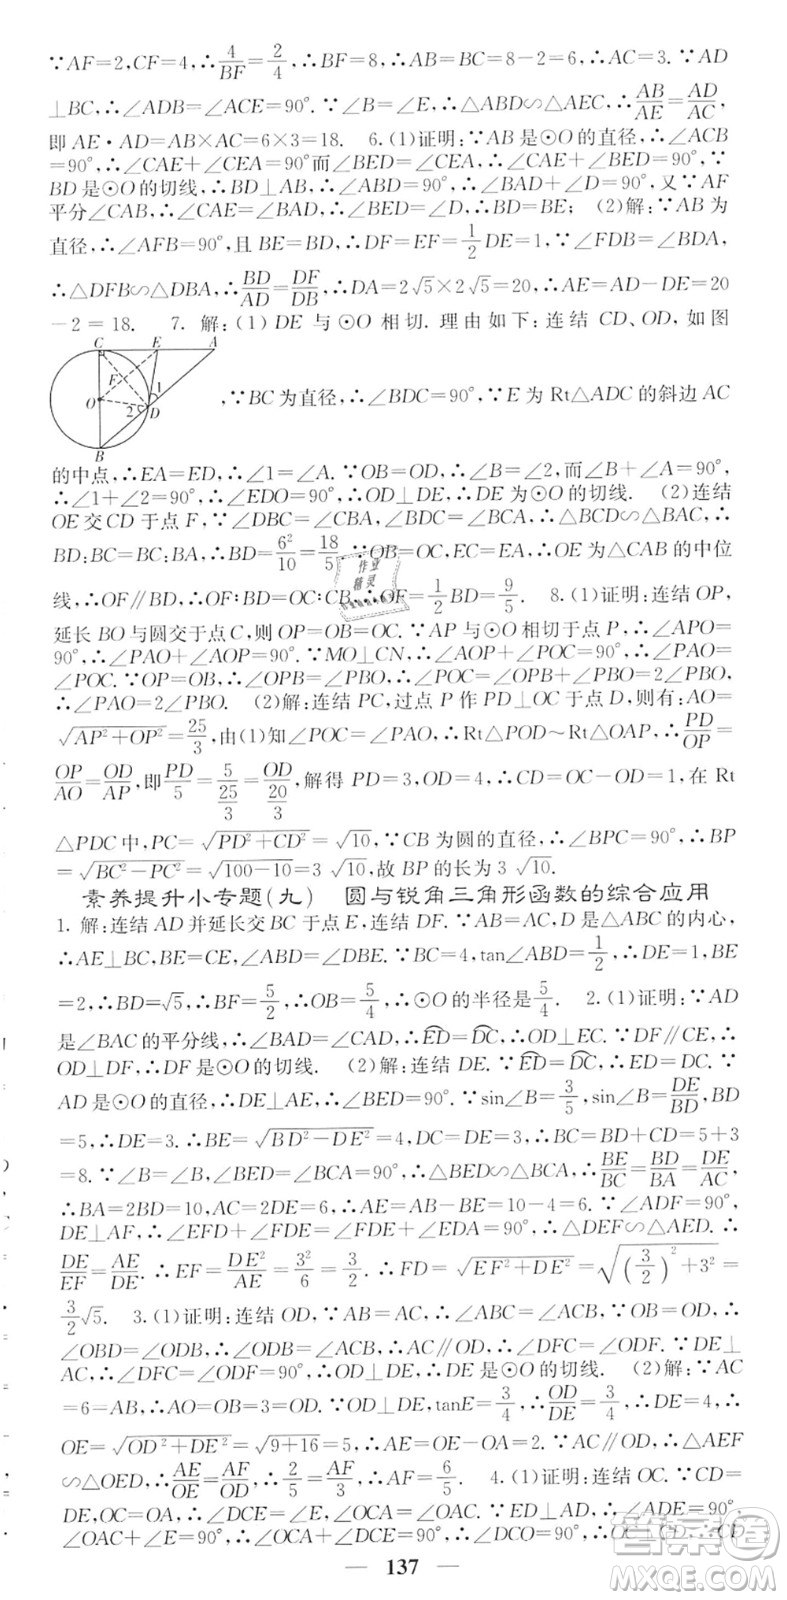 ∵AF=2,CF=4,∴4/BF=2/4,∴BF=8,∴AB=BC=8-2=6,∴AC=3.∵AD
⊥BC,∴∠ADB=∠ACE=90°.∵∠B=∠E,∴△ABD∽△AEC,∴AB/AE=AD/AC,
即 AE·AD=AB×AC=6×3=18. 6.(1)证明:∵AB是⊙O的直径,∴∠ACB
=90°,∴∠CAE+∠CEA=90°而∠BED=∠CEA,∴∠CAE+∠BED=90°,∵
BD是⊙O的切线,∴BD⊥AB,∴∠ABD=90°,∴∠BAD+∠D=90°,又∵AF
平分∠CAB,∴∠CAE=∠BAD,∴∠BED=∠D,∴BD=BE; (2)解:∵AB为
直径,∴∠AFB=90°,且BE=BD,∴DF=EF=1/2DE=1,∵∠FDB=∠BDA,
∴△DFB∽△DBA,∴BD/AD=DF/DB,∴DA=2√5×2√5=20,∴AE=AD-DE=20
-2=18. 7. 解:(1) DE 与⊙O 相切. 理由如下:连结 CD、OD, 如图
C E A
F 1
O
2 D
B
,∵BC为直径,∴∠BDC=90°,∵E 为 Rt△ADC的斜边AC
的中点,∴EA=ED,∴∠1=∠A.∵OB=OD,∴∠B=∠2,而∠B+∠A=90°,
∴∠1+∠2=90°,∴∠EDO=90°,∴OD⊥DE,∴DE为⊙O的切线. (2)连结
OE交CD于点F,∵∠DBC=∠CBA,∠BDC=∠BCA,∴△BCD∽△BAC,∴
BD:BC=BC:BA,∴BD=6²/10=18/5.∵OB=OC,CE=AE,∴OE为△CAB的中位
线,∴OF∥BD,∴OF:BD=OC:CB,∴OF=1/2BD=9/5. 8.(1)证明:连结OP,
延长BO与圆交于点C,则OP=OB=OC.∵AP与⊙O相切于点P,∴∠APO=
90°,∴∠PAO+∠AOP=90°.∵MO⊥CN,∴∠AOP+∠POC=90°,∴∠PAO=
∠POC.∵OP=OB,∴∠OPB=∠PBO,∴∠POC=∠OPB+∠PBO=2∠PBO,
∴∠PAO=2∠PBO. (2)解:连结PC,过点P作PD⊥OC于点D,则有:AO=
√AP²+OP²=25/3,由(1)知∠POC=∠PAO,∴Rt△POD~Rt△OAP,∴PD/OP=
OP/AO=OD/AP,即PD/5=5/(25/3)=OD/(20/3),解得PD=3,OD=4,∴CD=OC-OD=1,在Rt
△PDC中,PC=√PD²+CD²=√10,∵CB为圆的直径,∴∠BPC=90°,∴BP
=√BC²-PC²=√100-10=3√10,故BP的长为3√10.
素养提升小专题(九) 圆与锐角三角形函数的综合应用
1. 解:连结AD并延长交BC于点E,连结DF.∵AB=AC,D是△ABC的内心,
∴AE⊥BC,BE=CE,∠ABD=∠DBE.∵BC=4,tan∠ABD=1/2,∴DE=1,BE
=2,∴BD=√5,∴BF=5/2,∴OB=5/4,∴⊙O的半径是5/4. 2.(1)证明:∵AD
是∠BAC的平分线,∴∠BAD=∠CAD,∴ED=DC,∴OD⊥EC.∵DF∥CE,∴
OD⊥DF,∴DF是⊙O的切线. (2)解:连结DE.∵ED=DC,∴ED=DC=3.∵
AD是⊙O的直径,∴DE⊥AE,∴∠BED=90°.∵sin∠B=3/5,sin∠B=DE/BD,BD
=5,∴DE=3.∴BE=√BD²-DE²=4,DC=DE=3,∴BC=BD+CD=5+3
=8.∵∠B=∠B,∠BED=∠BCA=90°,∴△BED∽△BCA,∴BE/BC=BD/BA=DE/AC,
∴BA=2BD=10,AC=2DE=6,∴AE=AB-BE=10-4=6.∵DF⊥AD,
DE⊥AF,∴∠EFD+∠FDE=∠FDE+∠EDA=90°,∴△DEF∽△AED.∴
DE/EF=AE/DE.∴EF=DE²/AE=3²/6=3/2.∴FD=√EF²+DE²=√(3/2)²+3²=
3/2√5. 3.(1)证明:连结OD,∵AB=AC,∴∠ABC=∠ACB,∵OB=OD,∴
∠OBD=∠ODB,∴∠ODB=∠ACB,∴AC∥OD,∴∠DFC=∠ODF.∵DE⊥
AC,∴∠DFC=∠ODF=90°,∴OD⊥DE,∴DE是⊙O的切线. (2)解:∵AC
=6=AB,∴AO=OB=3=OD.∵OD⊥DE,tanE=3/4,∴OD/DE=3/4,∴DE=4,∴
OE=√OD²+DE²=√9+16=5,∴AE=OE-OA=2.∵AC∥OD,∴△AEF
∽△OED,∴AE/OE=AF/OD,∴2/5=AF/3,∴AF=6/5. 4.(1)证明:连结OC.∵CD=
DE,OC=OA,∴∠DCE=∠E,∠OCA=∠OAC.∵ED⊥AD,∴∠ADE=90°,
∠OAC+∠E=90°,∴∠OCA+∠DCE=90°,∴∠DCO=90°,∴OC⊥CD,∴CD
137
作业
精灵
答案圈
MXQE.COM